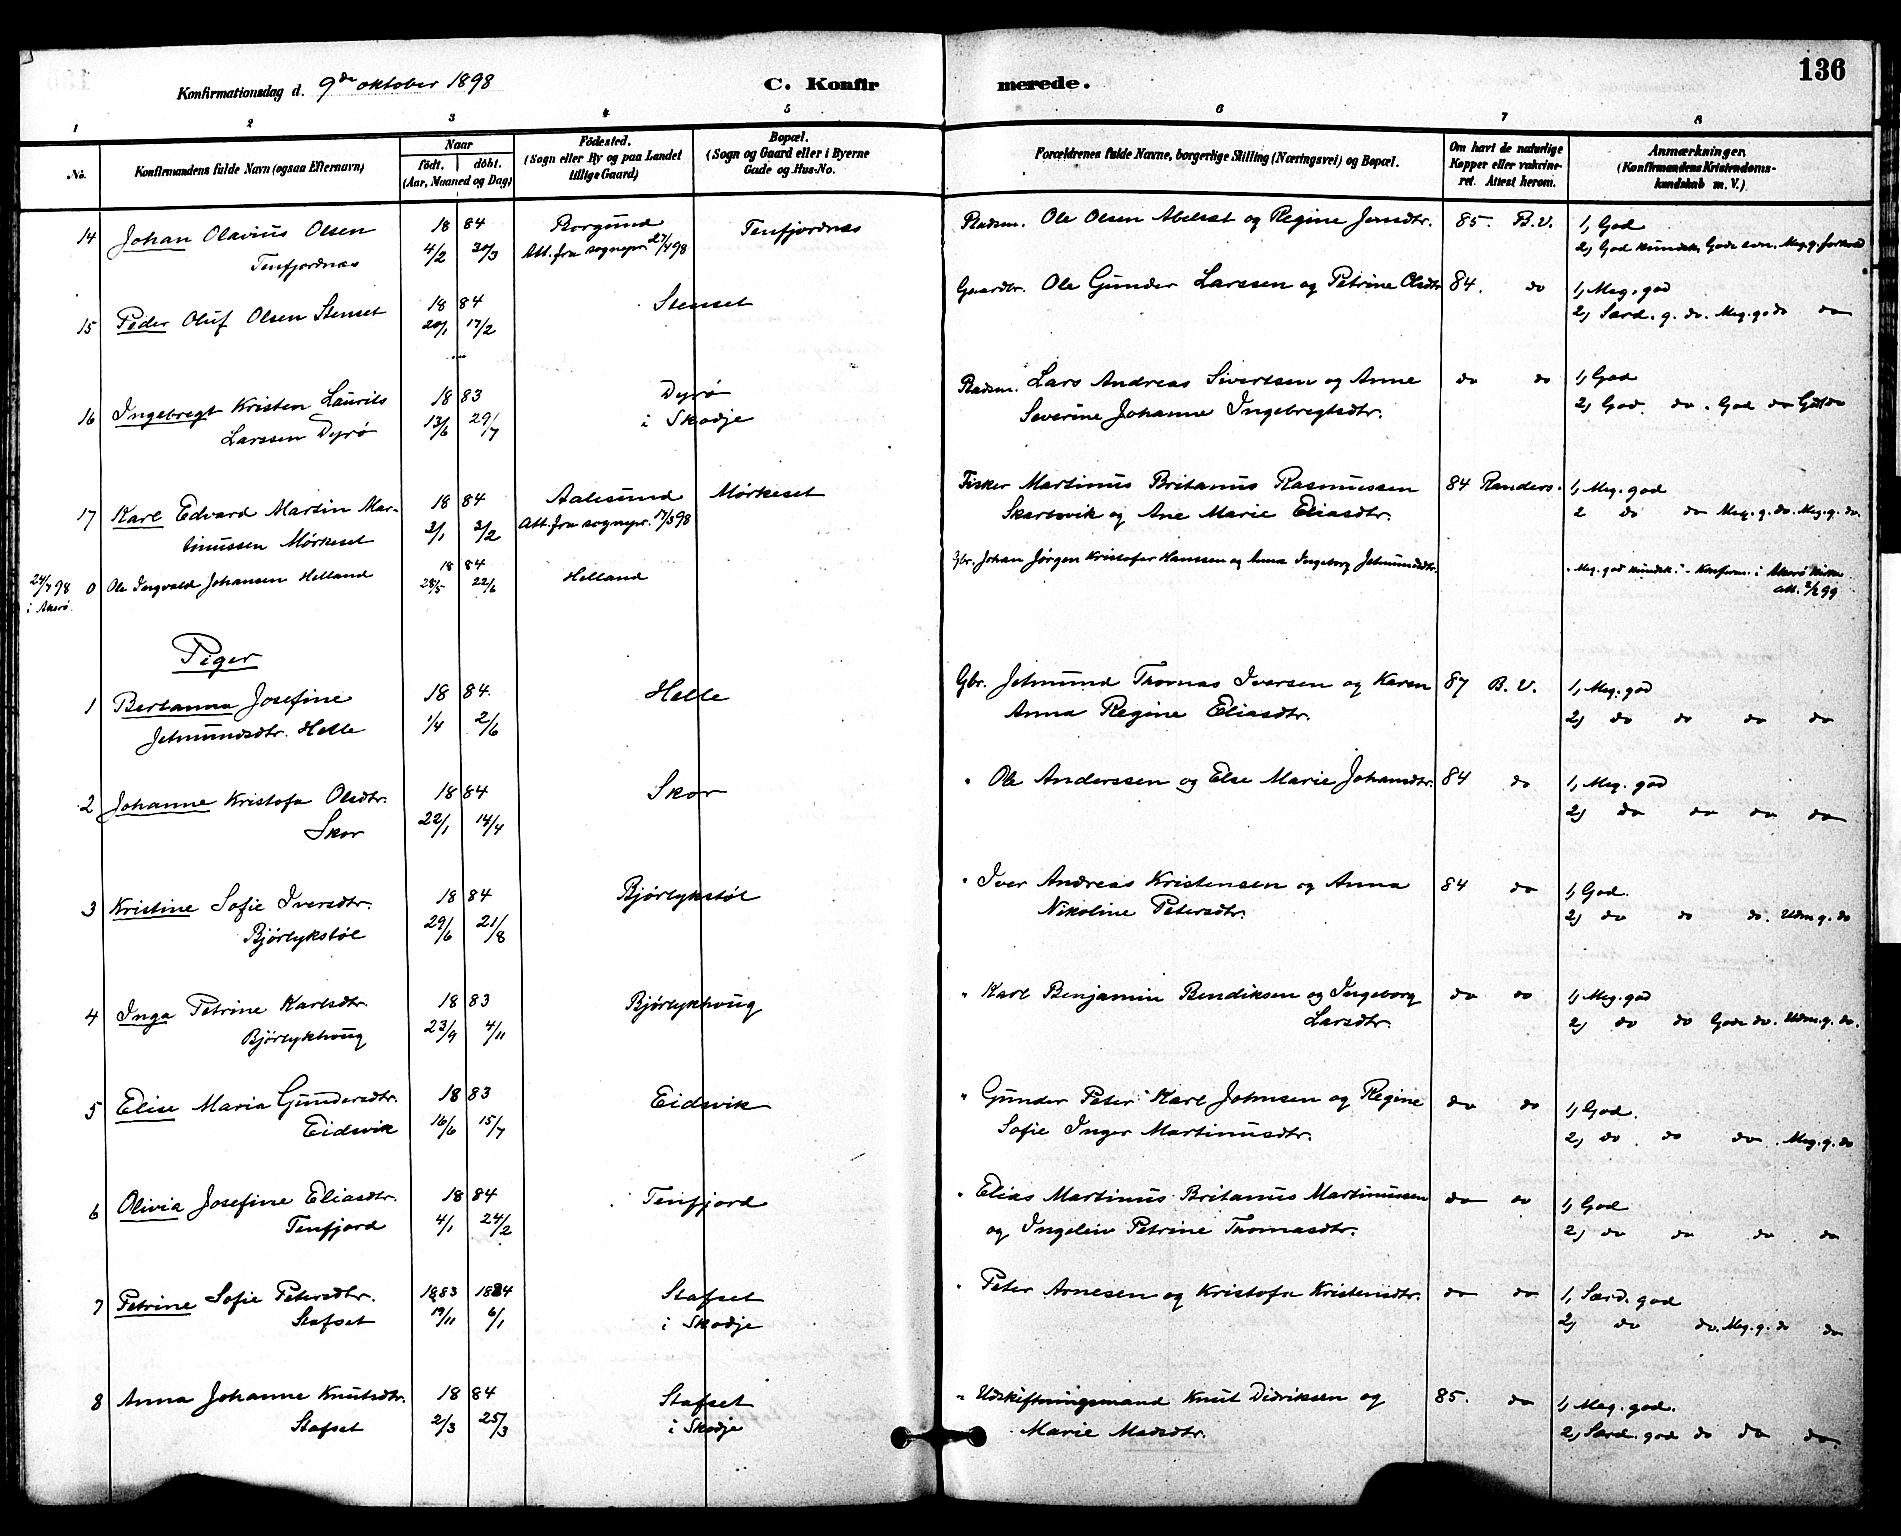 136
Konfirmationsdag d. 9de oktober 1898 C. Konfirmerede.
1 2 3 4 5 6 7 8
No.
Konfirmandens fulde Navn (ogsaa Efternavn)
Naar
födt. döbt.
(Aar, Maaned og Dag)
Födested.
(Sogn eller By og paa Landet
tillige Gaard)
Bopæl.
(Sogn og Gaard eller i Byerne
Gade og Hus-No.
Forældrenes fulde Navne, borgerlige Stilling (Næringsvei) og Bopæl.
Om havt de naturlige
Kopper eller vakcine-
ret. Attest herom.
Anmærkninger.
(Konfirmandens Kristendoms-
kundskab m. V.)
14 Johan Olavius Olsen 18 84 Borgund Tenfjordnes Pladsm. Ole Olsen Abelset og Regine Jensdtr. 85. B.V. 1, God
Tenfjordnes 4/2 30/3 Att. fra sognepr. 27/4 98 2, God kundsk. Gode evn. Meg. g. forhold
15 Peder Oluf Olsen Stenset 18 84 Stenset Gaardbr. Ole Gunder Larssen og Petrine Olsdtr 84. do 1, Meg. god
20/1 17/2 2, Særd. g. do. Meg. g. do do
16 Ingebregt Kristen Laurits 18 83 Dyrø Pladsm. Lars Andreas Sivertsen og Anne do do 1, God
Larssen Dyrø 13/6 29/7 i Skodje Severine Johanne Ingebregtsdtr. 2, God. do. God do
17 Karl Edvard Martin Mar- 18 84 Aalesund Mørkeset Fisker Martinus Britanus Rasmussen 84 Randers. 1, Meg. god
tinussen Mørkeset 2/1 3/2 Att. fra sognepr. 17/3 98 Skartsvik og Ane Marie Eliasdtr. 2 do do Meg. g. do. Meg. g. do.
24/7 98 0 Ole Ingvald Johansen Helland 18 84 Helland Gbr. Johan Jørgen Kristofer Hanssen og Anna Ingeborg Jetmundsdtr. "Meg. god kundsk." - Konfirm. i Akerø kirke
i Akerø. 28/5 22/6 att. 2/2 99
Piger
1 Bertanna Josefine 18 84. Helle Gbr. Jetmund Thomas Iversen og Karen 87 B.V. 1, Meg. god
Jetmundsdtr. Helle 1/4 2/6 Anna Regine Eliasdtr. 2, do do do do
2 Johanne Kristofa Olsdtr. 18 84 Skor " Ole Anderssen og Else Marie Johansdtr. 84 do 1, Meg. god
Skor 22/1 14/4 2, do do do do
3 Kristine Sofie Iversdtr. 18 84 Bjørlykstøl " Iver Andreas Kristensen og Anna 84 do 1, God.
Bjørlykstøl 29/6 21/8 Nikoline Petersdtr. 2, do do do. Udm. g. do
4 Inga Petrine Karlsdtr. 18 83 Bjørlykhoug " Karl Benjamin Bendiksen og Ingeborg do do 1, Meg. god
Bjørlykhoug 23/9 4/11 Larsdtr. 2, do do Gode do. Udm. g. do.
5 Elise Maria Gundersdtr. 18 83 Eidsvik " Gunder Peter Karl Johnsen og Regine do do 1, God.
Eidsvik 16/6 15/7 Sofie Inger Martinusdtr. 2, do do do Meg. g. do
6 Olivia Josefine Eliasdtr. 18 84 Tenfjord " Elias Martinus Britanus Martinussen do do 1, God
Tenfjord 4/1 24/2 og Ingeleiv Petrine Thomasdtr. 2, do do do do
7 Petrine Sofie Petersdtr. 1883 1884 Stafset " Peter Arnesen og Kristofa Kristensdtr. do do 1, Særd. god
Stafset 19/11 6/1 i Skodje 2, do do. Meg. g. do do
8 Anna Johanne Knutsdtr. 18 84 Stafset " Udskiftningsmand Knut Didriksen og 85. do 1, Meg. god.
Stafset 2/3 25/3 i Skodje Marie Madsdtr. 2, Særd. god do do do.